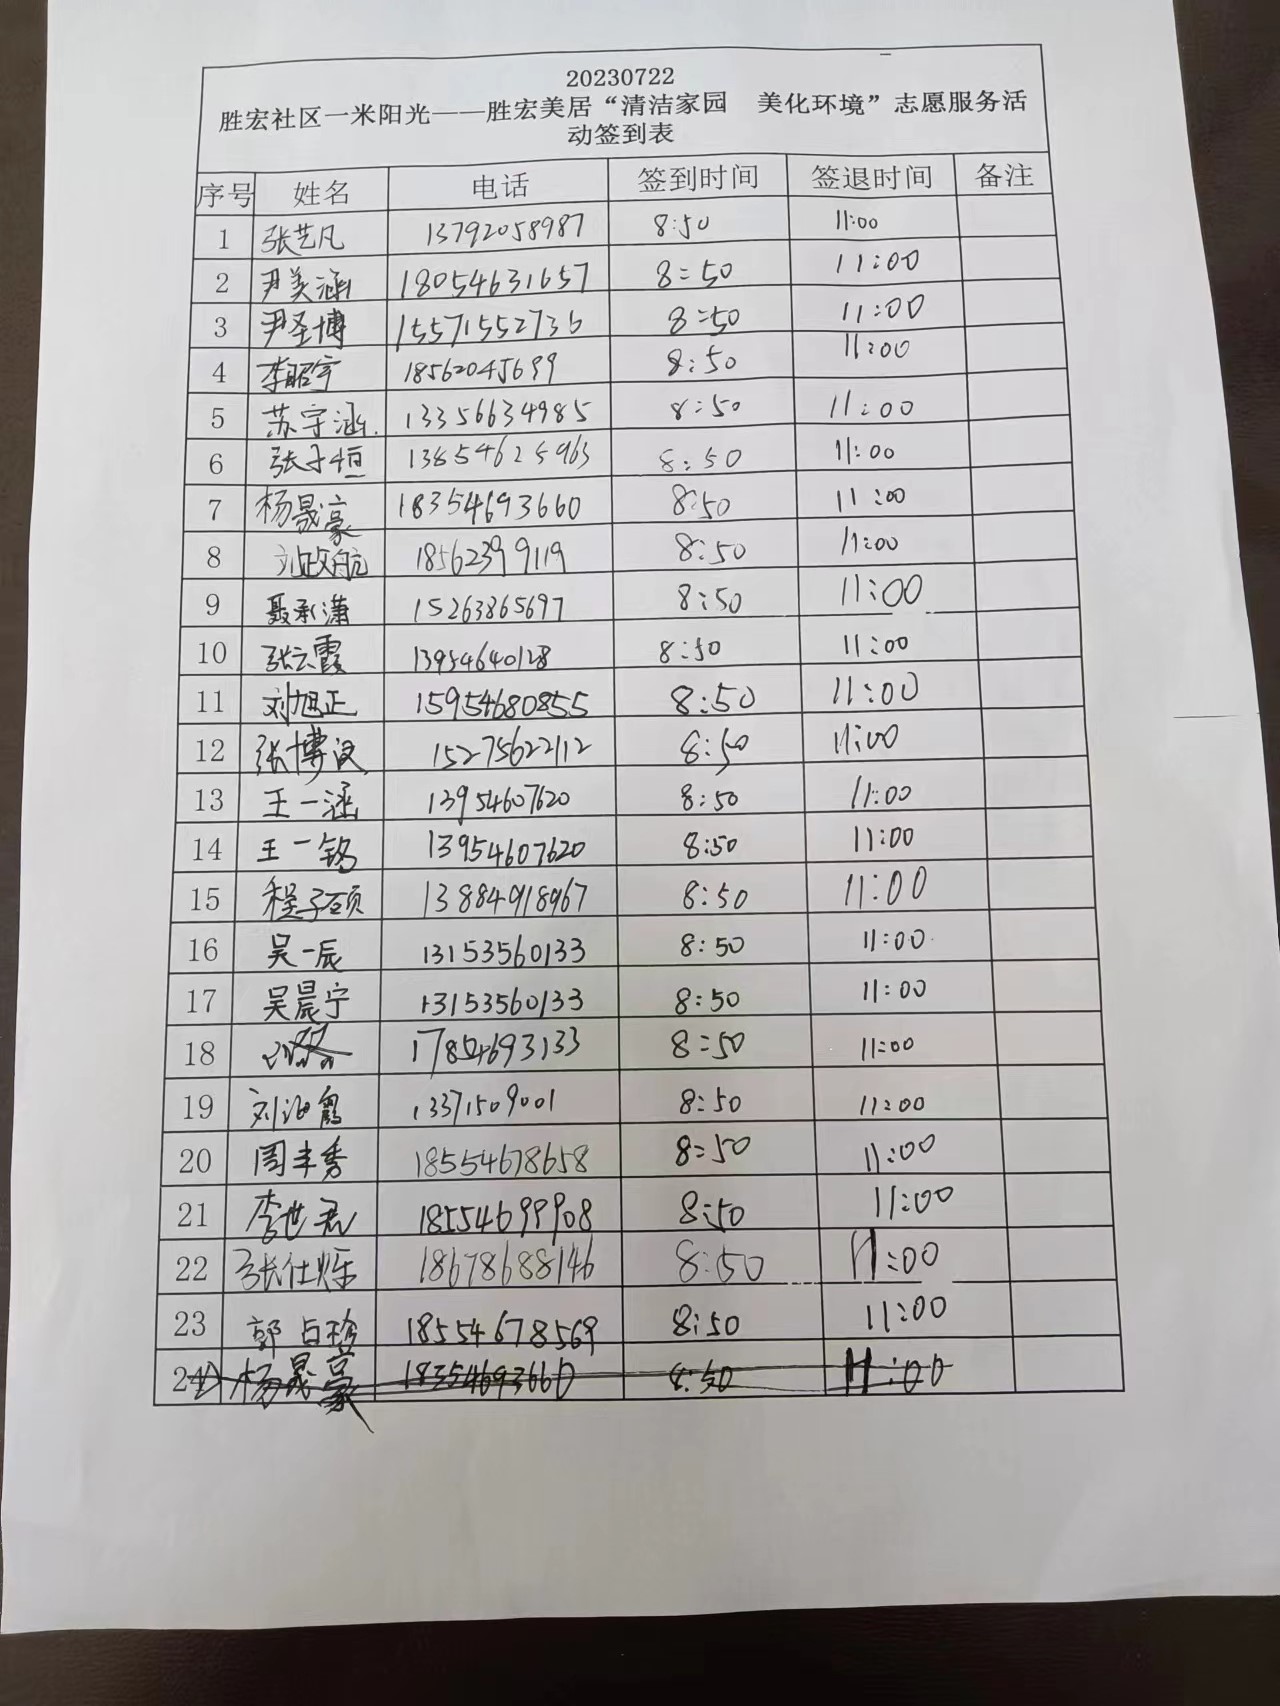 20230722
胜宏社区一米阳光——胜宏美居“清洁家园 美化环境”志愿服务活
动签到表
序号 姓名 电话 签到时间 签退时间 备注
1 张艺凡 13792058987 8:50 11:00
2 尹美涵 18054631657 8:50 11:00
3 尹圣博 15571552736 8:50 11:00
4 李昭宇 18562045699 8:50 11:00
5 苏宇涵 13356634985 8:50 11:00
6 张子恒 13854625963 8:50 11:00
7 杨晟豪 18354693660 8:50 11:00
8 刘政航 18562399119 8:50 11:00
9 聂承潇 15263865697 8:50 11:00
10 张云霞 13954640128 8:50 11:00
11 刘旭正 15954680855 8:50 11:00
12 张博汶 15275622112 8:50 11:00
13 王一涵 13954607620 8:50 11:00
14 王一铭 13954607620 8:50 11:00
15 程子硕 13884918967 8:50 11:00
16 吴一辰 13153560133 8:50 11:00
17 吴晨宁 13153560133 8:50 11:00
18 17854693133 8:50 11:00
19 刘 霞 13371509001 8:50 11:00
20 周丰秀 18554678658 8:50 11:00
21 李世君 18554699908 8:50 11:00
22 张仕烁 18678688146 8:50 11:00
23 郭占珍 18554678569 8:50 11:00
24 杨晟豪 18354693660 8:50 11:00